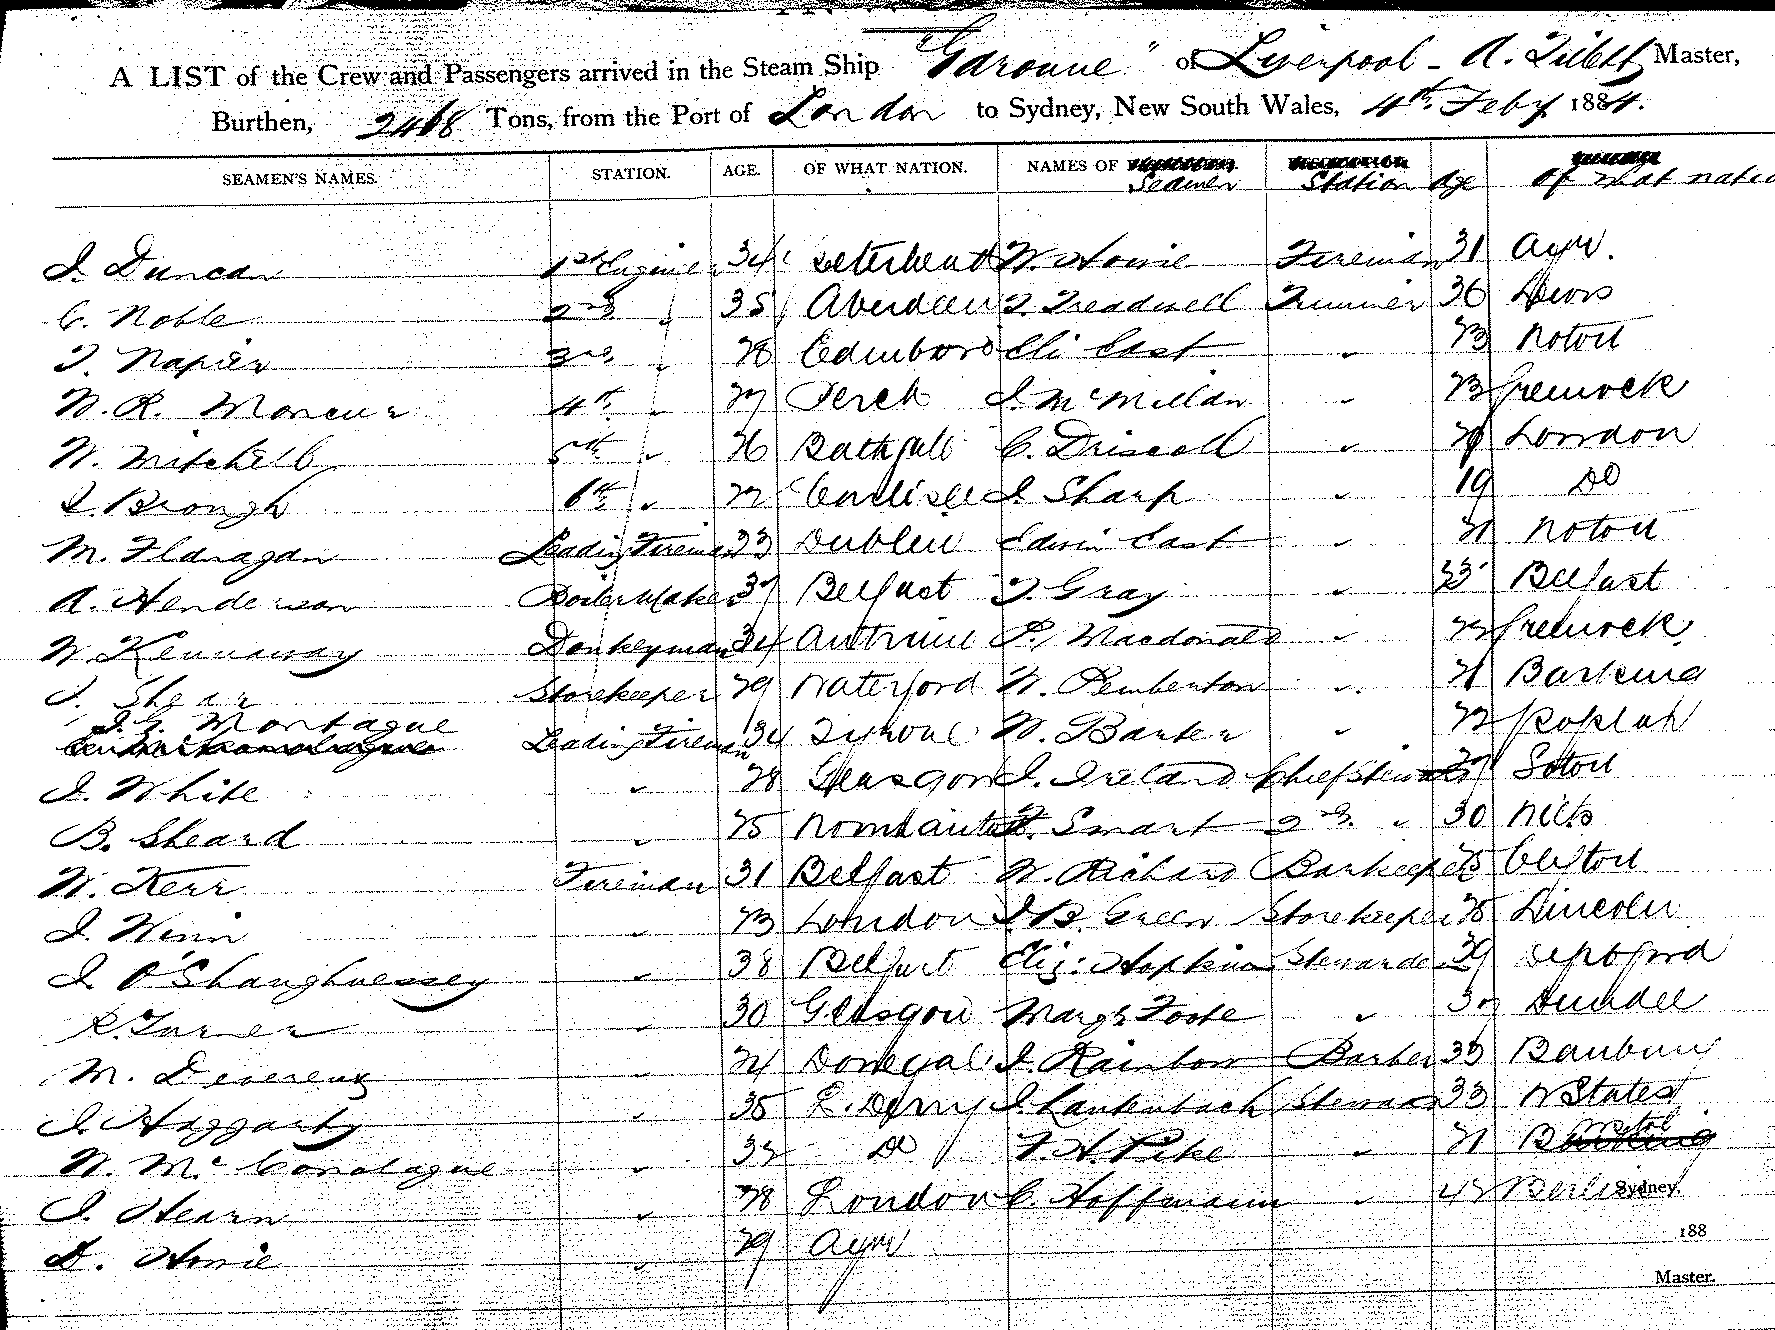 A LIST of the Crew and Passengers arrived in the Steam Ship "Garonne" of Liverpool - A. Tillett Master,
Burthen, 2468 Tons, from the Port of London to Sydney, New South Wales, 4th Feby 1884.
SEAMEN'S NAMES. STATION. AGE. OF WHAT NATION. NAMES OF Seamen Station Age of what nation
J. Duncan 1st Engineer 34 Peterhead W. Howie Fireman 31 Ayr.
C. Noble 2nd " 35 Aberdeen T. Treadwell Trimmer 36 Devon
T. Napier 3rd " 28 Edinboro Eli East " 23 Noton
W. R. Moncur 4th " 27 Perth J. McMillan " 23 Greenock
W. Mitchell 5th " 26 Bathgate C. Driscoll " London
J. Brough 6th " 22 Carlisle J. Sharp " 19 Do
M. Flanagan Leading Fireman 33 Dublin Edwin East " 21 Noton
A. Henderson Boiler Maker 37 Belfast T. Gray " Belfast
W. Kennaway Donkeyman 34 Antrim P. Macdonald " 22 Greenock
J. Shear Storekeeper 29 Waterford W. Pemberton " 21 Barking
J. G. Montague Leading Fireman 34 Tyrone W. Barker " 22 Poplar
J. White " 28 Glasgow J. Ireland Chief Steward Soton
B. Sheard " 25 Smart 2nd " 30 Wilts
W. Kerr Fireman 31 Belfast W. Richard Barkeeper 25 Clifton
J. Winn " 23 London J. B. Green Storekeeper 25 Lincoln
J. O'Shaughnessey " 38 Belfast Eliz: Hopkins Stewardess 39 Deptford
R. Turner " 30 Glasgow Margt Foote " Dundee
M. Devereux " 24 Donegal J. Rainbow Barber 33 Banbury
J. Haggarty " 35 L. Derry J. Lautenbach Steward 33 U States
W. McConalogue " 32 Do F. H. Pike " 21 Bristol
J. Hearn " 28 London C. Hoffmann " 42 Berlin Sydney
D. Howie " 29 Ayr
188
Master.